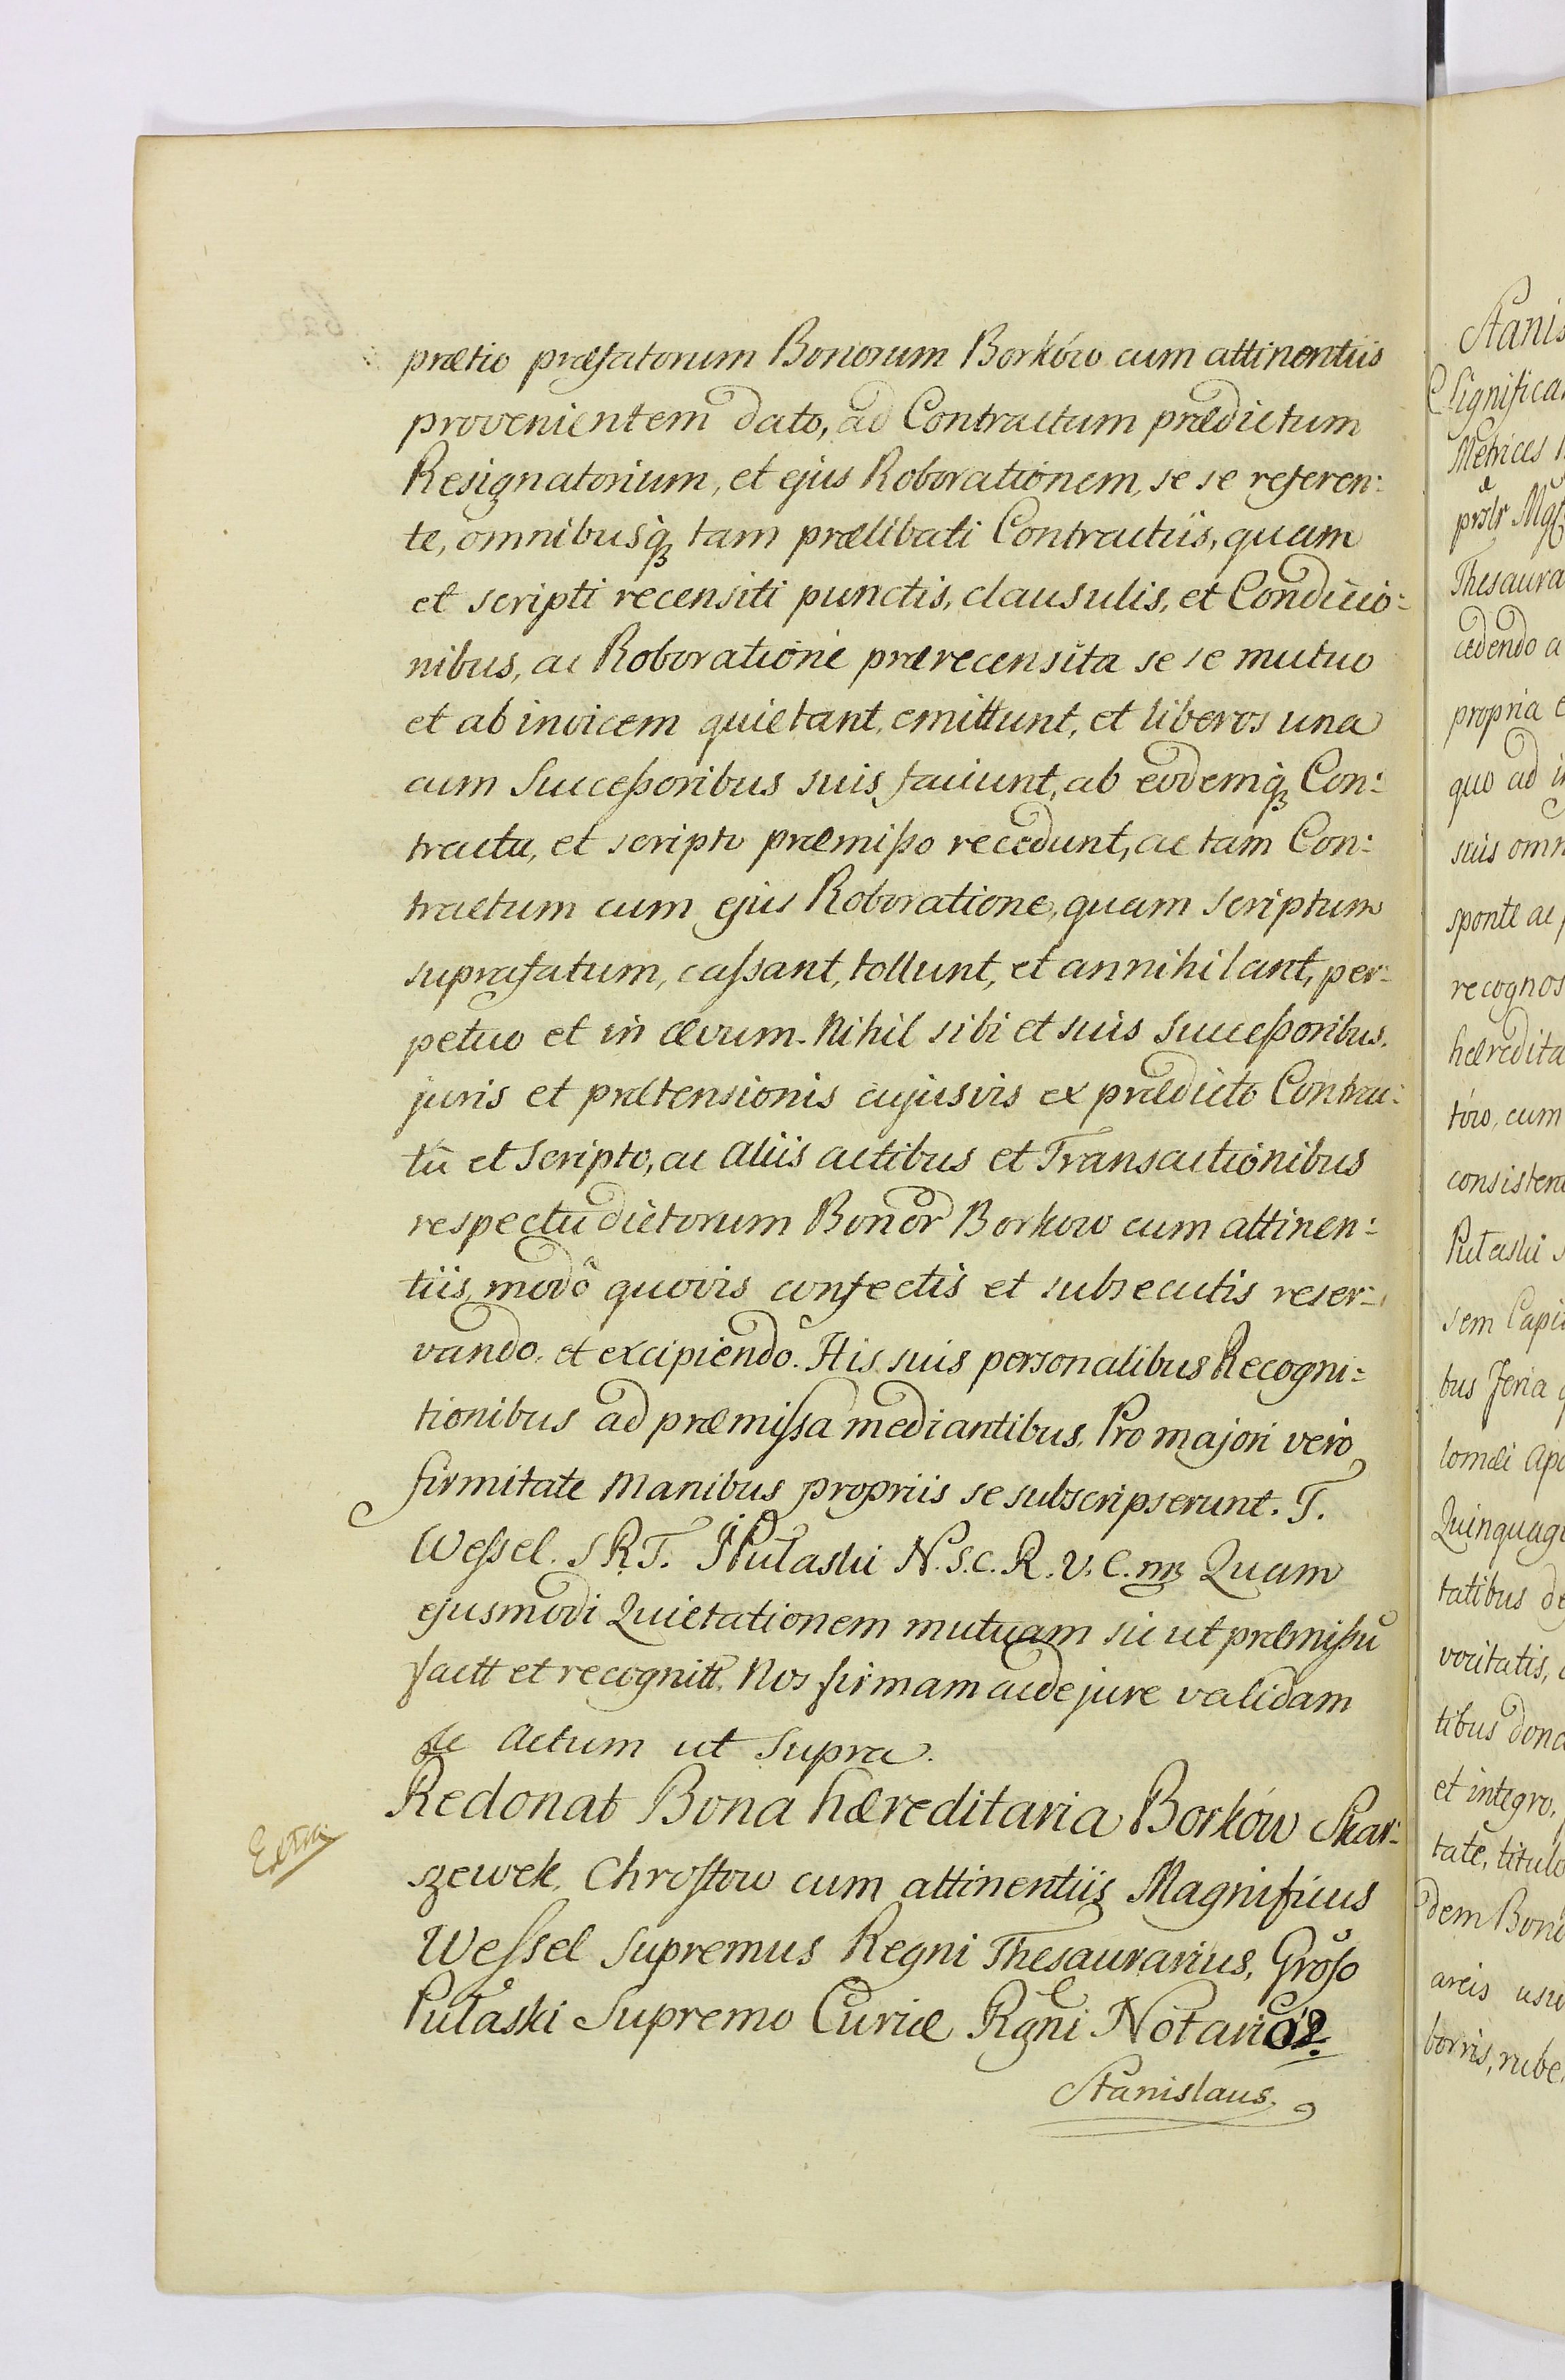 prætio præfatorum Bonorum Borków cum attinentiis
provenientem dato, ad Contractum prædictum
Resignatorium, et ejus Roborationem, se se referen:
te, omnibusq́ꝫ tam prælibati Contractûs, quam
et scripti recensiti punctis, clausulis, et Conditio:
nibus, ac Roboratione prærecensita se se mutuo
et ab invicem quietant, emittunt, et liberos una
cum Succeßoribus suis faciunt, ab eodemqꝫ Con:
tractu, et scripto præmißo recedunt, ac tam Con:
tractum cum ejus Roboratione, quam Scriptum
suprafatum, caſsant, tollunt, et annihilant, per:
petuo et in ævum. Nihil sibi et suis Succeßoribus,
juris et prætensionis cujusvis ex prædicto Contrac:
tû et Scripto, ac aliis actibus et Transactionibus
respectu dictorum Bonor Borkow cum attinen:
tiis, modô quovis confectis et subsecutis reser:
vando, et excipiendo. His suis personalibus Recogni:
tionibus ad præmiſsa mediantibus. Pro majori vero
firmitate Manibus propriis se subscripserunt. T.
Weſsel. S R. T. Pułaski N. S. C. R. V. C. mꝫ Quam
ejusmodi Quietationem mutuam sic ut præmißũ
factt et recognitt. Nos firmam ac de jure validam
&c Actum ut Supra.
Redonat Bona hæreditaria Borków Skar:
szewek, Chroſtow cum attinentiis Magnificus
Weſsel Supremus Regni Thesaurarius, Groſo
Pułaski Supremo Curiæ Rgni Notario
Stanislaus.
Stanis
Significa
Metrices
Thesaura
cedendo a
propria e
quo ad i
suis omn
sponte ac
recognos
hæredita
tów, cum
consisten
Pułaski s
sem Capi
bus Feria q
lomæi Apo
Quinquage
tatibus de
voritatis,
tibus dona
et integro,
tate, titulo
dem Bono
areis usu
borris, rube